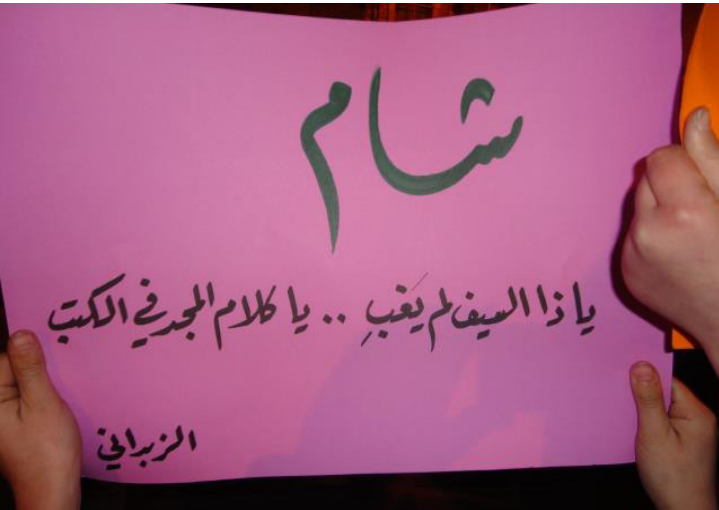 شام
يا ذا السيف لم يغبِ .. يا كلام المجد في الكتب
الزبداني